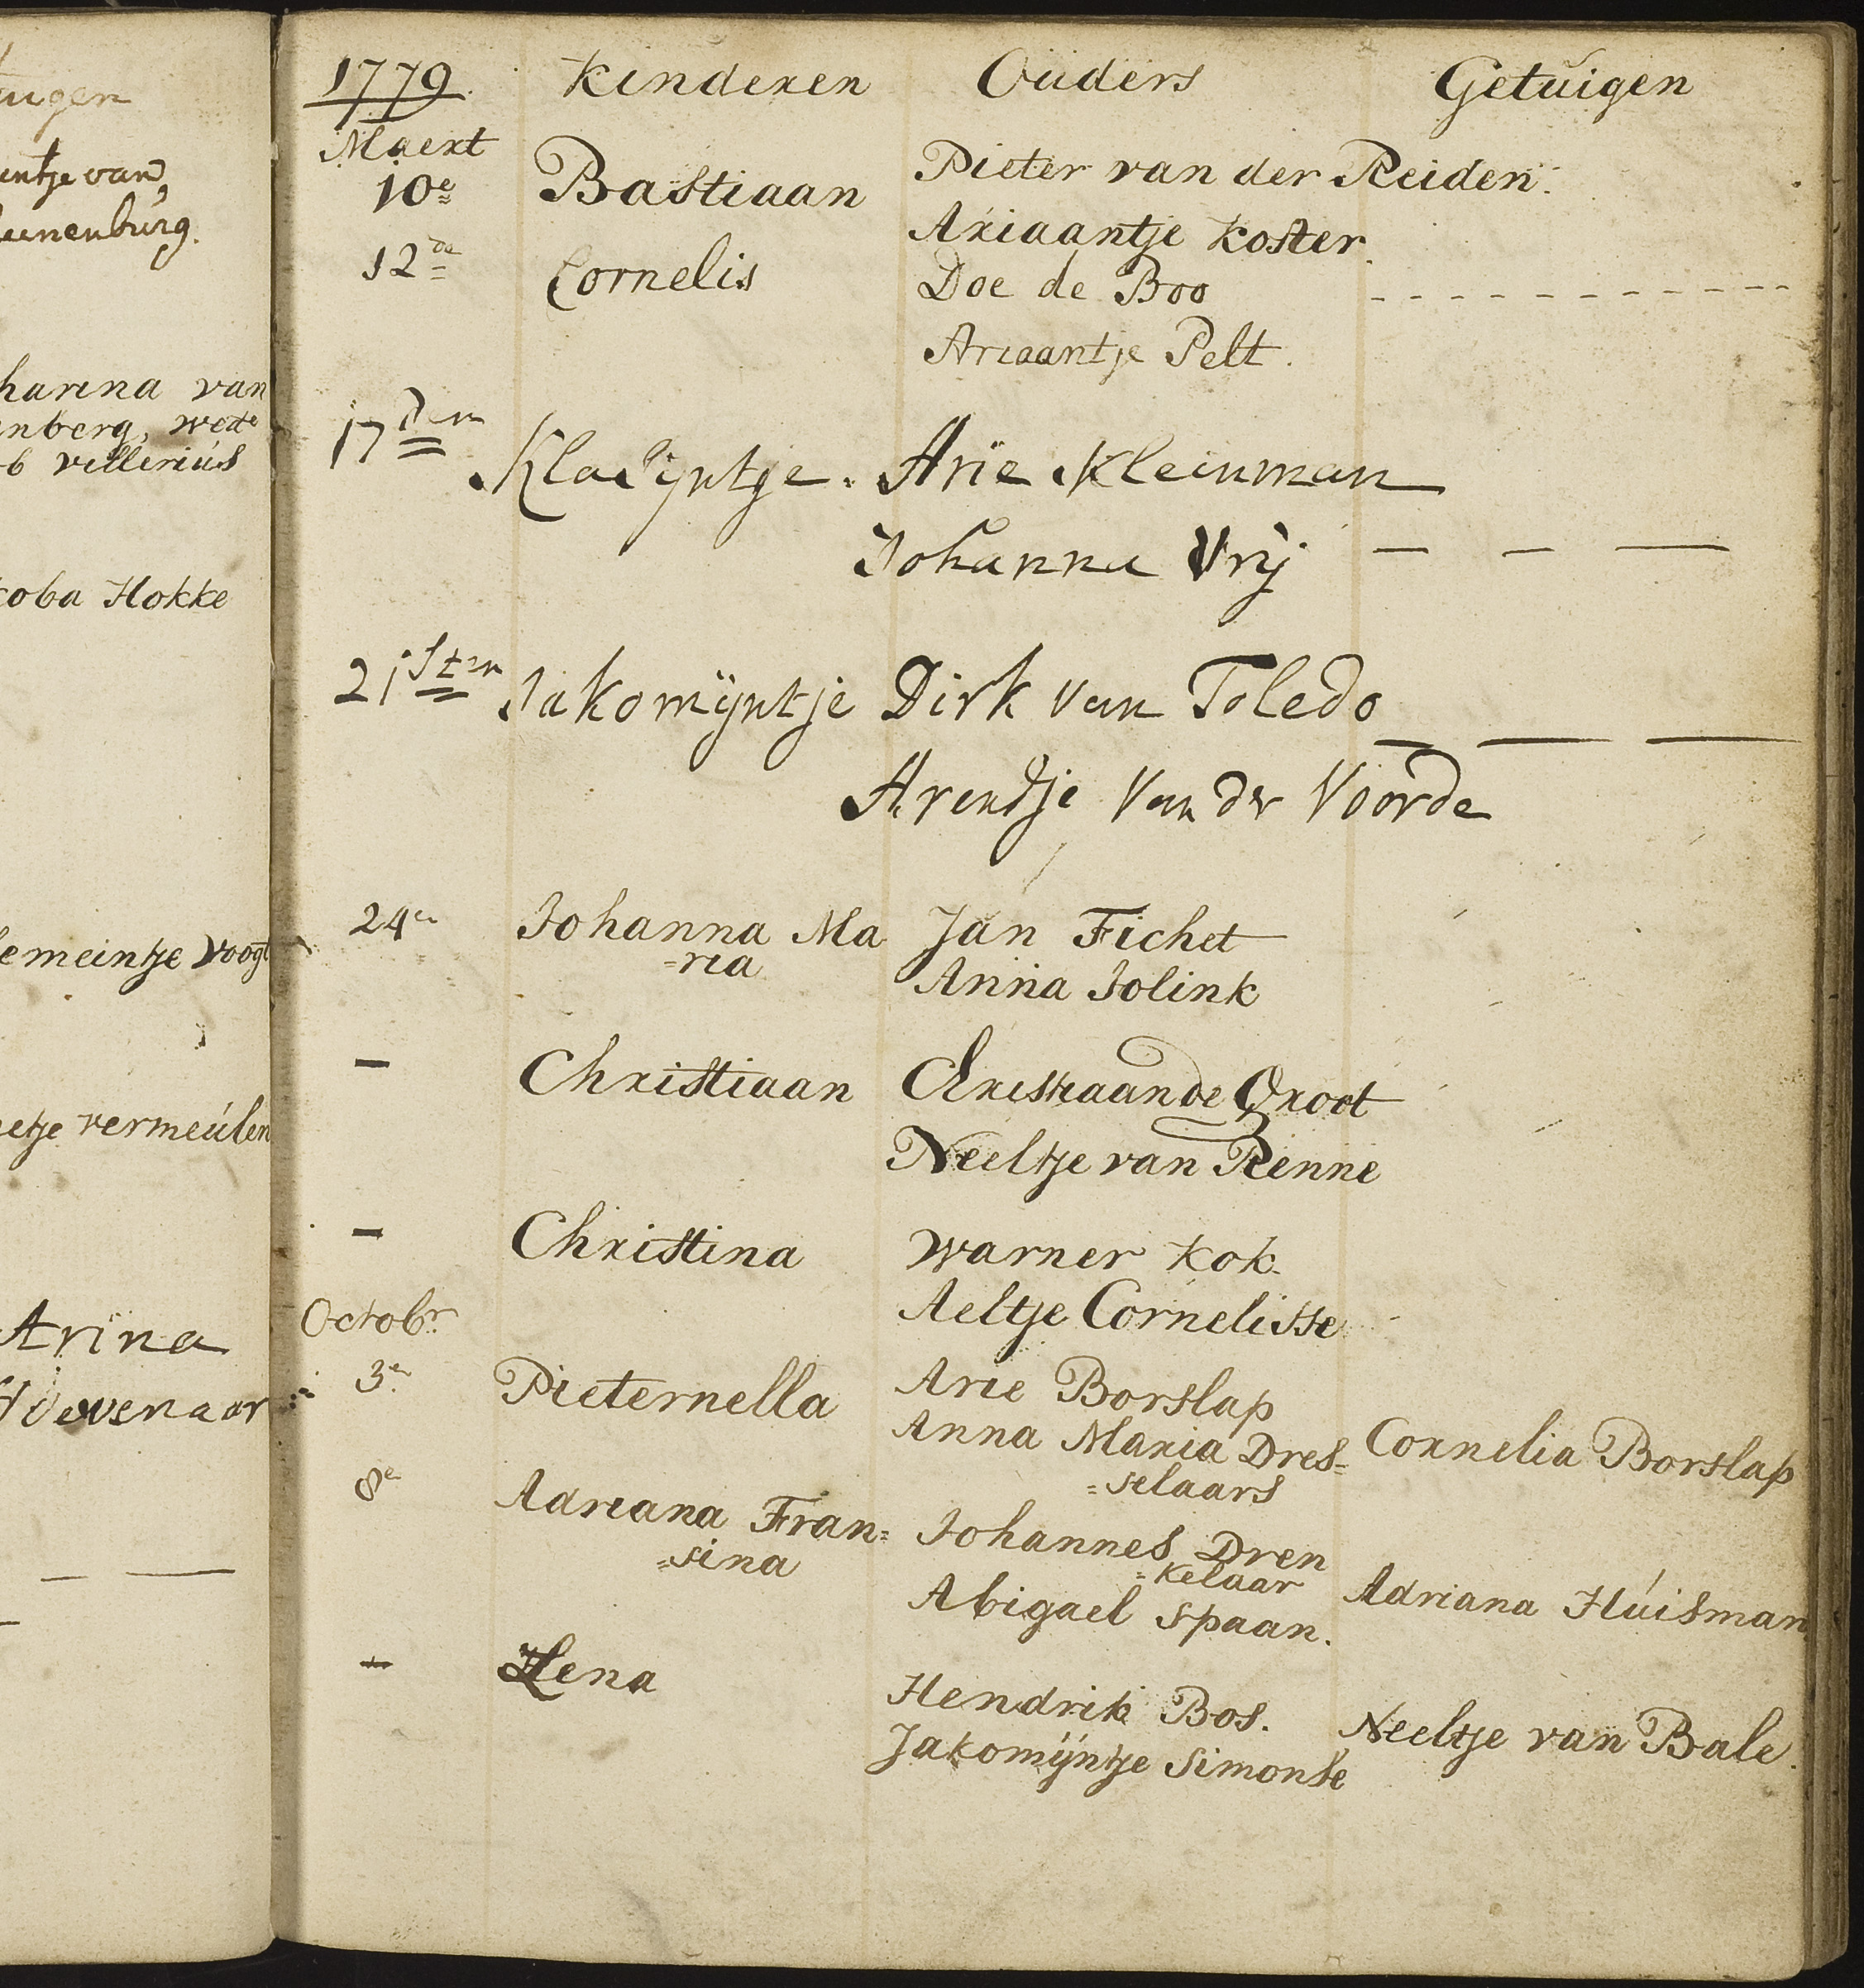 ugen
entje van
eunenbúrg.
harina van
nberg, wede
b villeriús
coba Hokke
emeintje Voogt
etje vermeúlen
Arina
Hoevenaar
1779. Kinderen Oúders Getúigen
Maert
10e Bastiaan Pieter van der Reiden.
Ariaantje Koster.
12de Cornelis Doe de Boo
Ariaantje Pelt.
17den Klasijntje. Arie Kleinman
Johanna Vrij
21sten Jakomijntje Dirk Van Toledo
Arendje Van der Voorde
24en Johanna Ma Jan Fichet
=ria Anna Jolink
— Christiaan Christiaan de Groot
Neeltje van Renne
— Christina Warner Kok.
Aeltje Cornelisse
Octobr.
3e Pieternella Arie Borslap
Anna Maria Dres= Cornelia Borslap
=selaars
8e Adriana Fran= Johannes Dren
=sina =kelaar
Abigael Spaan. Adriana Húisman
— Lena Hendrik Bos.
Jakomijntje Simonse Neeltje van Bale.